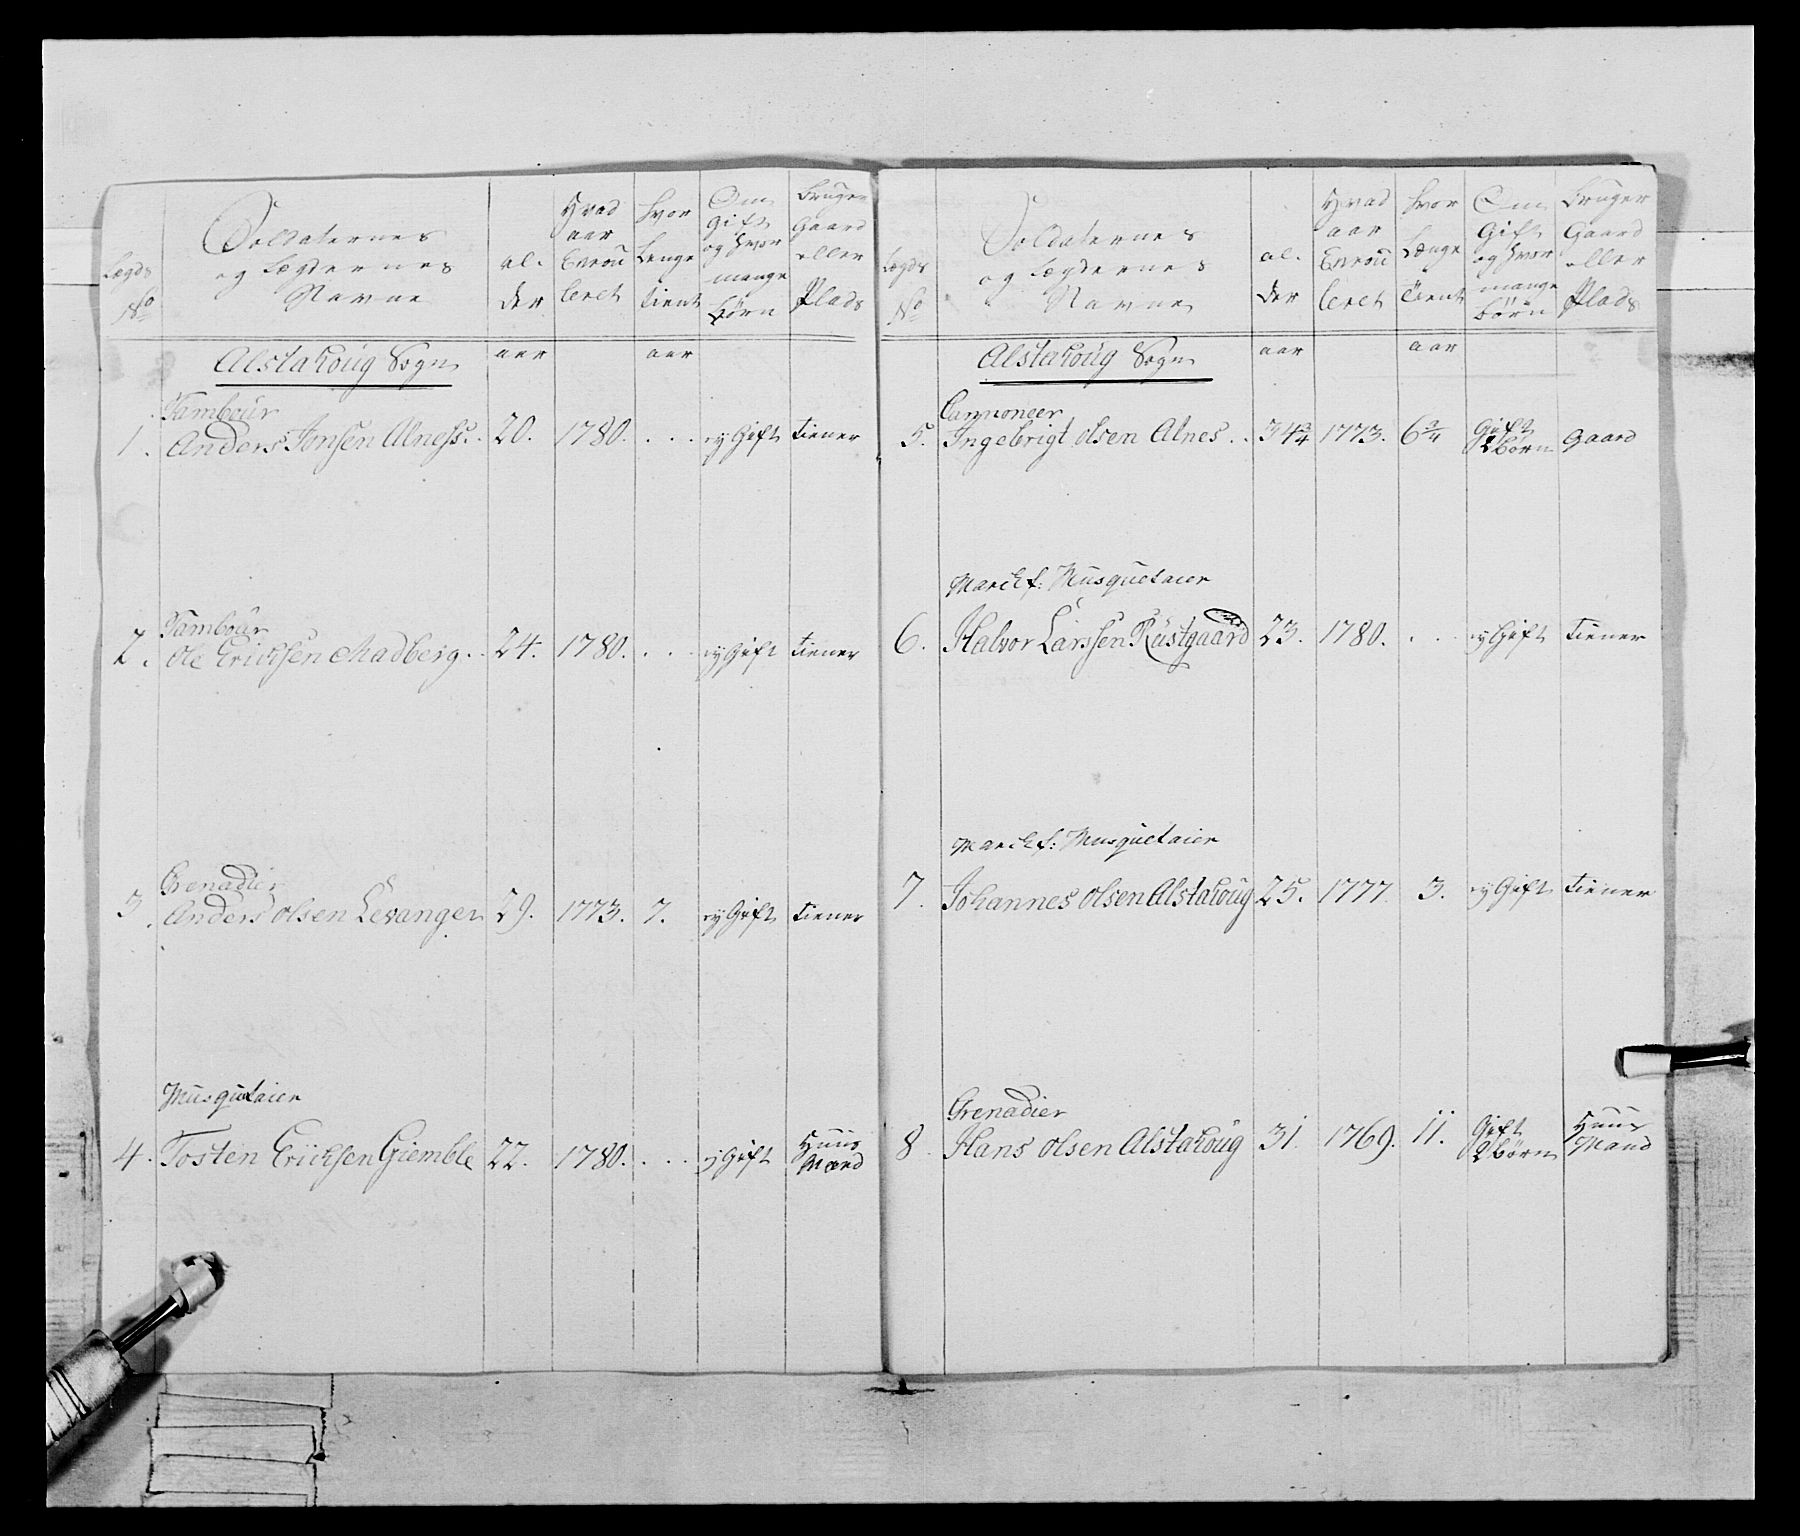 Lægds No
Soldaternes og Lægdernes Navne
al. der
Hvad aar Enrou leret
hvor Lenge tient
Om Gift og hvor mange börn
bruger Gaard eller Plads
Alstahoüg Sogn aar aar
Tamboür
1. Anders Jonsen Alness. 20. 1780. . . . ey Gift tiener
Tamboür
2. Ole Ericksen Madberg. 24. 1780. . . . ey Gift tiener
Grenadier
3. Anders olsen Levanger 29. 1773. 7. ey Gift tiener
Musquetaier
4. Tosten Ericksen Giemble 22. 1780. . . . ey Gift Huus Mand
Lægds No
Soldaternes og Lægdernes Navne
al. der
Hvad aar Enrou leret
hvor Længe tient
Om Gift og hvor mange börn
bruger Gaard eller Plads
Alstahoüg Sogn aar aar
Cannoneer
5. Ingebrigt olsen Alnes . . 34 3/4 1773. 6 3/4 Gift 2 börn gaard
Marck f: Musquetaier
6. Halvor Larssen Rüstgaard 23. 1780. . . ey Gift tiener
Marck f: Musquetaier
7. Johannes olsen Alstahoüg 25. 1777 3. ey Gift tiener
Grenadier
8. Hans olsen Alstahoüg 31. 1769. 11. Gift 2 börn Huus Mand